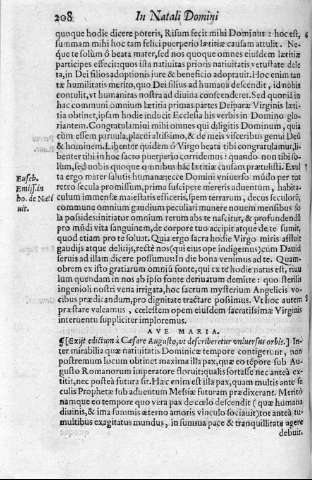 208 In Natali Domini
quoque hodie dicere poteris, Risum fecit mihi Dominus: hoc est,
summam mihi hoc tam felici puerperio lætitiæ causam attulit. Ne-
que te solum ô beata mater, sed nos quoque omnes eiusdem lætitiæ
participes effecit: quos ista natiuitas prioris natiuitatis vetustate dele
ta, in Dei filios adoptionis iure & beneficio adoptauit. Hoc enim tan
tæ humilitatis merito, quo Dei filius ad humana descendit, id nobis
contulit, vt humanitas nostra ad diuina conscenderet. Sed quoniã in
hac communi omnium lætitia primas partes Deiparæ Virginis læti-
tia obtinet, ipsam hodie inducit Ecclesia his verbis in Domino glo-
riantem. Congratulamini mihi omnes qui diligitis Dominum, quia
cũm essem paruula, placui altissimo, & de meis visceribus genui Deũ
& hominem. Libenter quidem ô Virgo beata tibi congratulamur, li-
benter tibi in hoc sacto puerperio corridemus: quando non tibi so-
lum, sed nobis quoque omnibus hac lætitiæ causam præstitisti. Exul
Euseb. ta ergo mater salutis humanæ: ecce Domini vniuersis mũdo per tot
Emiss. in retro secula promissum, prima suscipere mereris aduentum, habita-
ho. de Nati culum immensæ maiestatis efficeris, spem terrarum, decus seculorũ,
uit. commune omnium gaudium peculiari munere nouem mensibus so
la possides: initiator omnium rerum abs te nascitur, & profundendũ
pro mũdi vita sanguinem, de corpore tuo accipit atque de te sumit,
quod etiam pro te soluat. Quia ergo sacra hodie Virgo miris affluit
gaudijs atque delicijs, rectè nos (qui eius ope indigemus) cum Dauid
seruis ad illam dicere possumus: In die bona venimus ad te. Quam-
obrem ex isto gratiarum omniũ fonte, qui ex te hodie natus est, riuu
lum quendam in nos ab ipso fonte deriuatum demitte: quo sterilis
ingenioli nostri vena irrigata, hoc sacrum mysterium Angelicis vo-
cibus prædicandum, pro dignitate tractare possimus. Vt hoc autem
præstare valeamus, cælestem opem eiusdem sacratissimæ Virginis
interuentu suppliciter imploremus.
AVE MARIA.
¶ [Exijt edictum à Cæsare Augusto, vt describeretur vniuersus orbis.] In-
ter mirabilia quæ natiuitatis Dominicæ tempore contigerunt, non
postremum locum obtinet maxima illa pax, quæ eo tẽpore sub Au-
gusto Romanorum imperatore floruit: qualis fortasse nec anteà ex-
titit, nec posteà futura sit. Hæc enim est illa pax, quam multis ante se
culis Prophetæ sub aduentum Messiæ futuram prædixerant. Meritò
namque eo tempore quo vera pax de cælo descendit (quæ humana
diuinis, & ima summis æterno amoris vinculo sociauit) tot anteà tu-
multibus exagitatus mundus, in summa pace & tranquillitate agere
debuit.